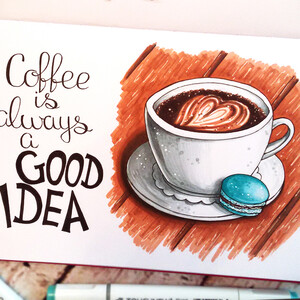 Coffee
is
always
a
GOOD
IDEA